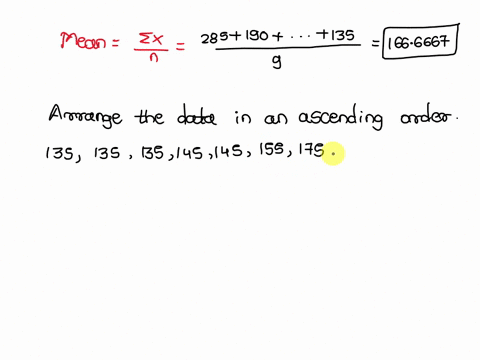 Mean = Σx/n = 285+190+ ··· +135/9 = 166.6667
Arrange the data in an ascending order.
135, 135, 135, 145, 145, 155, 175